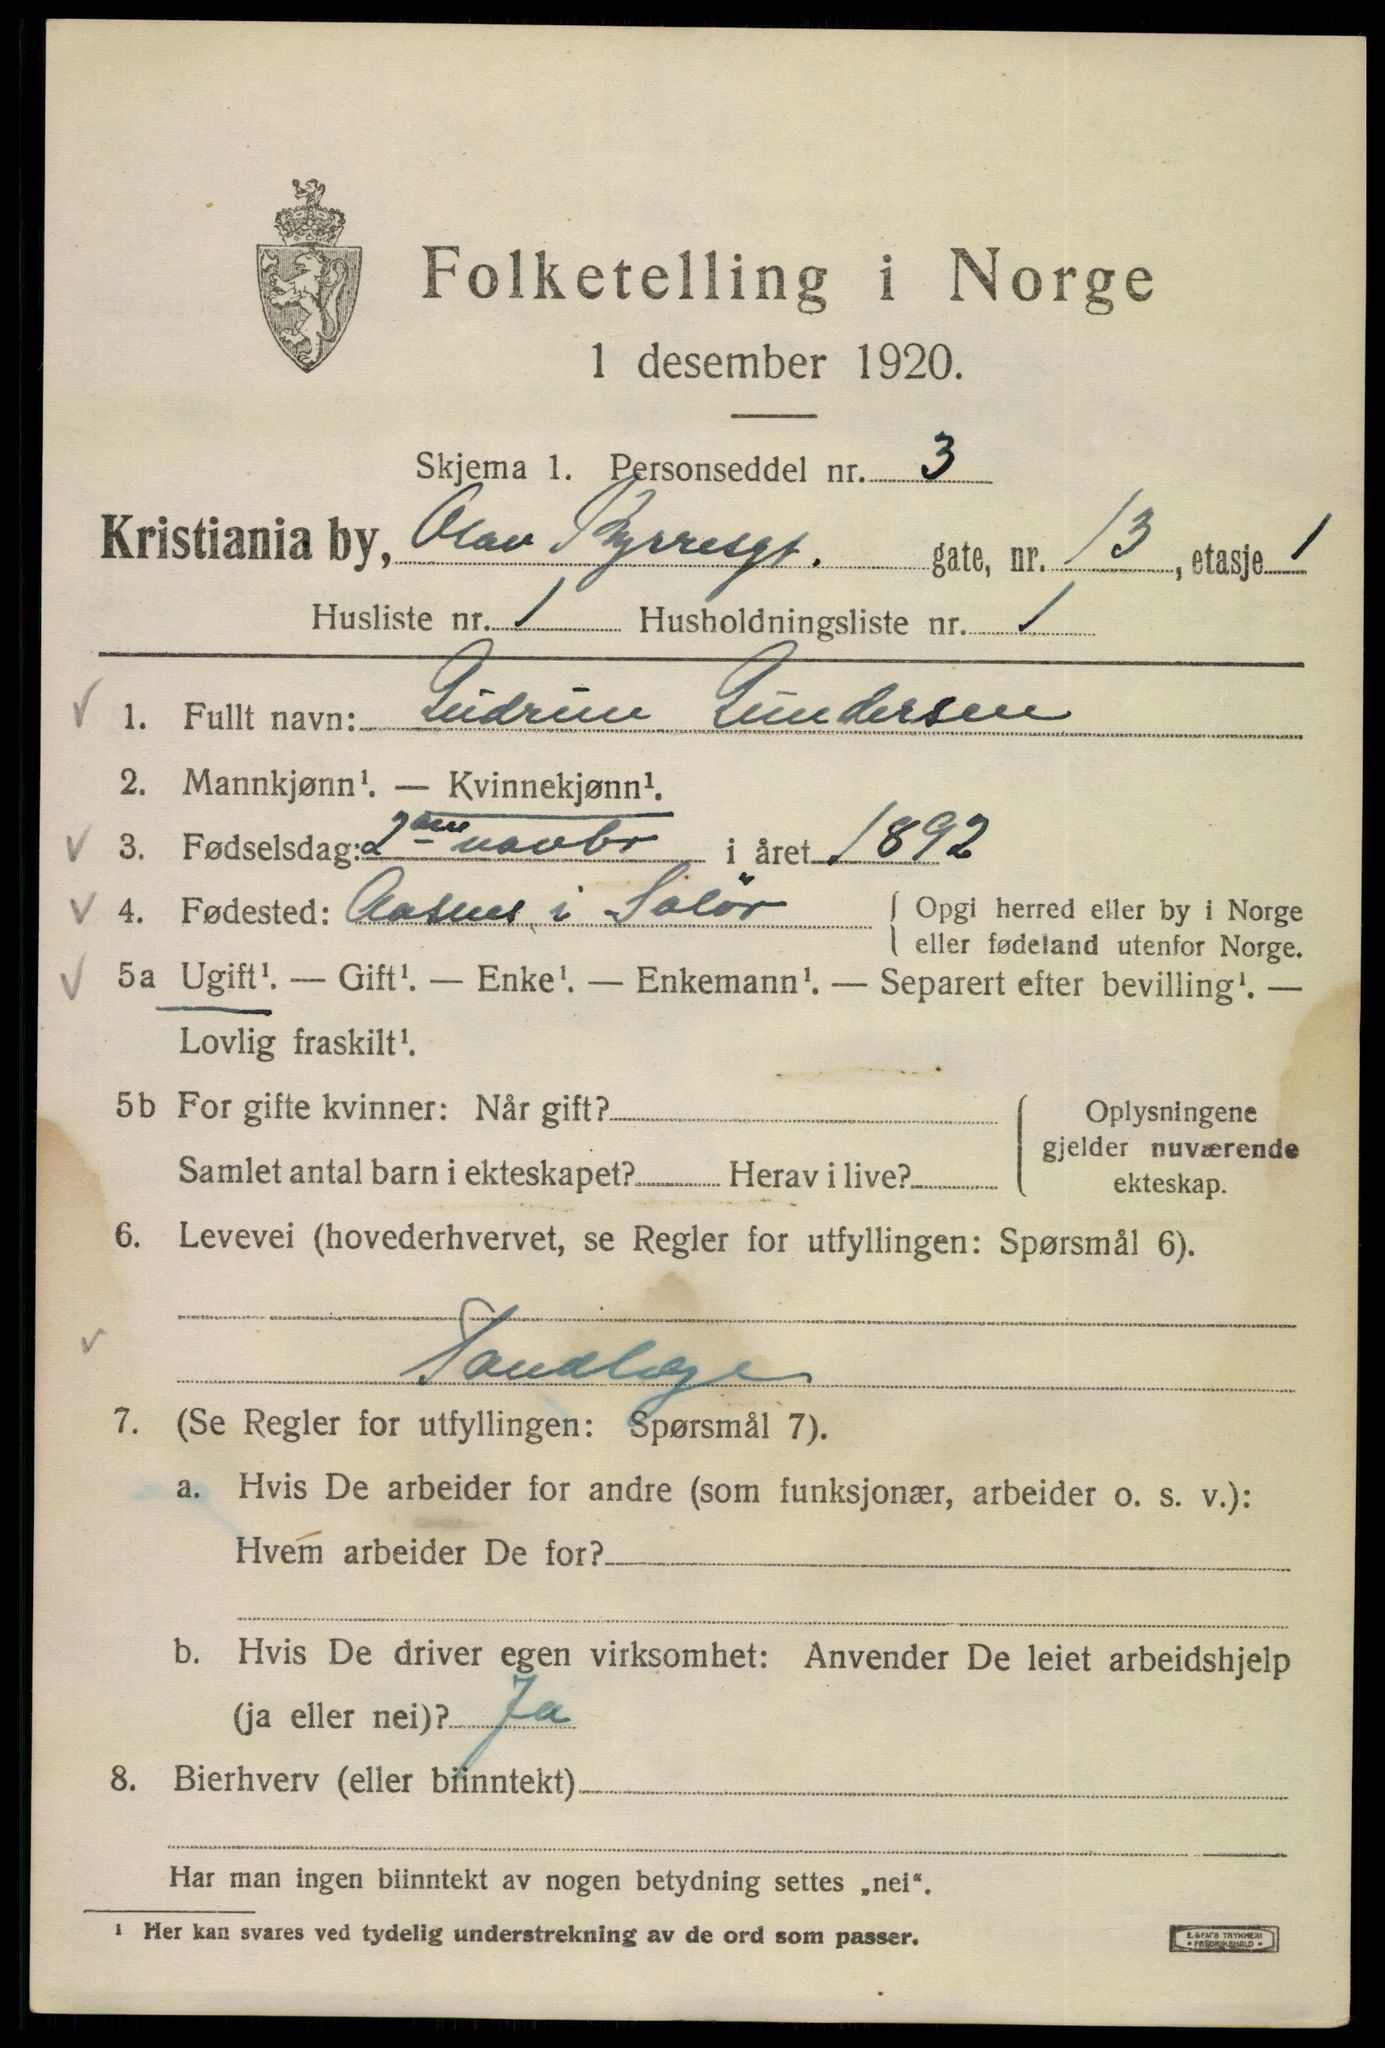 Folketelling i Norge
1 desember 1920.
Skjema 1. Personseddel nr. 3
Kristiania by, Olav Kyrresgt. gate, nr. 13, etasje 1
Husliste nr. 1 Husholdningsliste nr. 1
1. Fullt navn: Gudrun Gundersen
2. Mannkjønn¹. — Kvinnekjønn¹.
3. Fødselsdag: 2 novbr i året 1892
4. Fødested: Aasnes i Solör { Opgi herred eller by i Norge
eller fødeland utenfor Norge.
5a Ugift¹. — Gift¹. — Enke¹. — Enkemann¹. — Separert efter bevilling¹. —
Lovlig fraskilt¹.
5b For gifte kvinner: Når gift?
Samlet antal barn i ekteskapet? Herav i live?
{ Oplysningene
gjelder nuværende
ekteskap.
6. Levevei (hovederhvervet, se Regler for utfyllingen: Spørsmål 6).
Tandlæge
7. (Se Regler for utfyllingen: Spørsmål 7).
a. Hvis De arbeider for andre (som funksjonær, arbeider o. s. v.):
Hvem arbeider De for?
b. Hvis De driver egen virksomhet: Anvender De leiet arbeidshjelp
(ja eller nei)? Ja
8. Bierhverv (eller biinntekt)
Har man ingen biinntekt av nogen betydning settes „nei“.
¹ Her kan svares ved tydelig understrekning av de ord som passer.
E. SEM'S TRYKKERI
• FREDRIKSHALD •